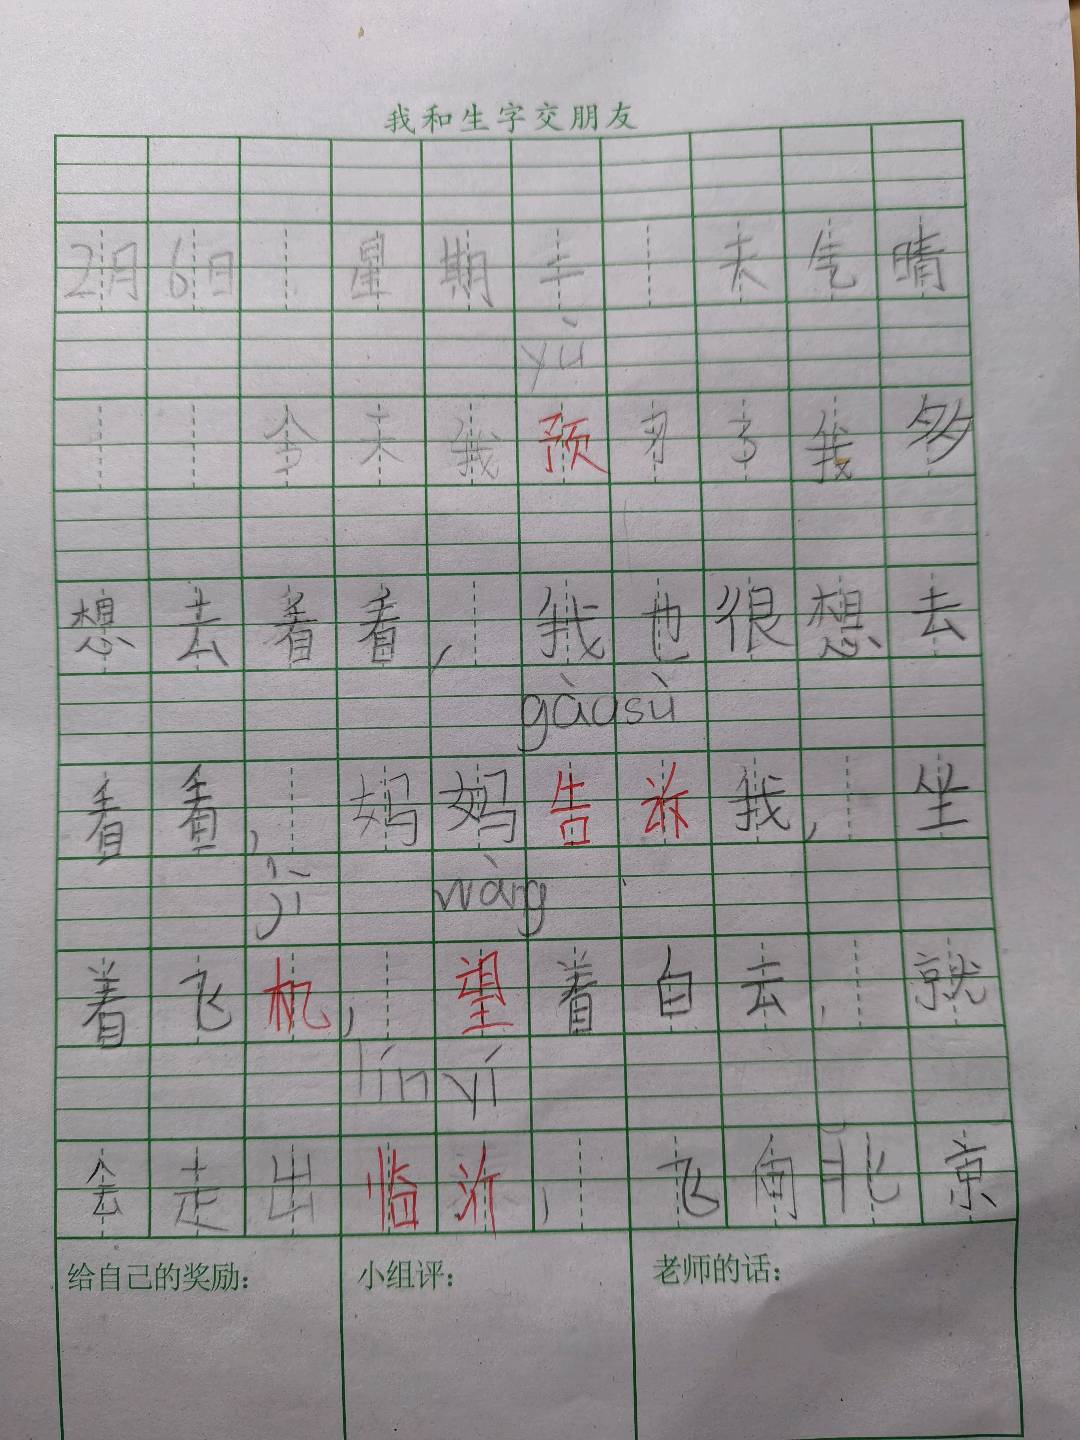 我和生字交朋友
2月6日 星期三 天气晴
yù
今天我预习了我多
想去看看，我也很想去
gàosù
看看，妈妈告诉我，坐
jī wàng
着飞机，望着白云，就
lín yí
会走出临沂，飞向北京
给自己的奖励： 小组评： 老师的话：